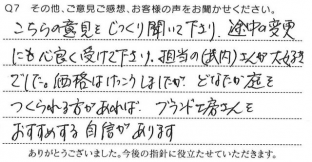 Q7 その他、ご意見ご感想、お客様の声をお聞かせください。
こちらの意見をじっくり聞いて下さり、途中の変更
にも心良く受けて下さり、担当の(武内)さんが大好き
でした。価格はけっこうしましたが、どなたか庭を
つくられる方があれば、ブランド工房さんを
おすすめする自信があります
ありがとうございました。今後の指針に役立たせていただきます。